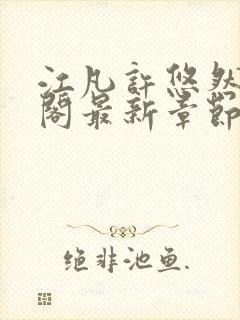 江凡許悠然
閣最新章節
绝非池鱼.